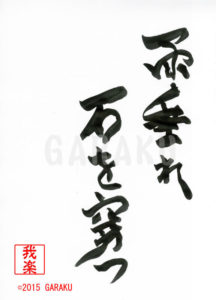 雨垂れ
石を穿つ
GARAKU
我楽
©2015 GARAKU